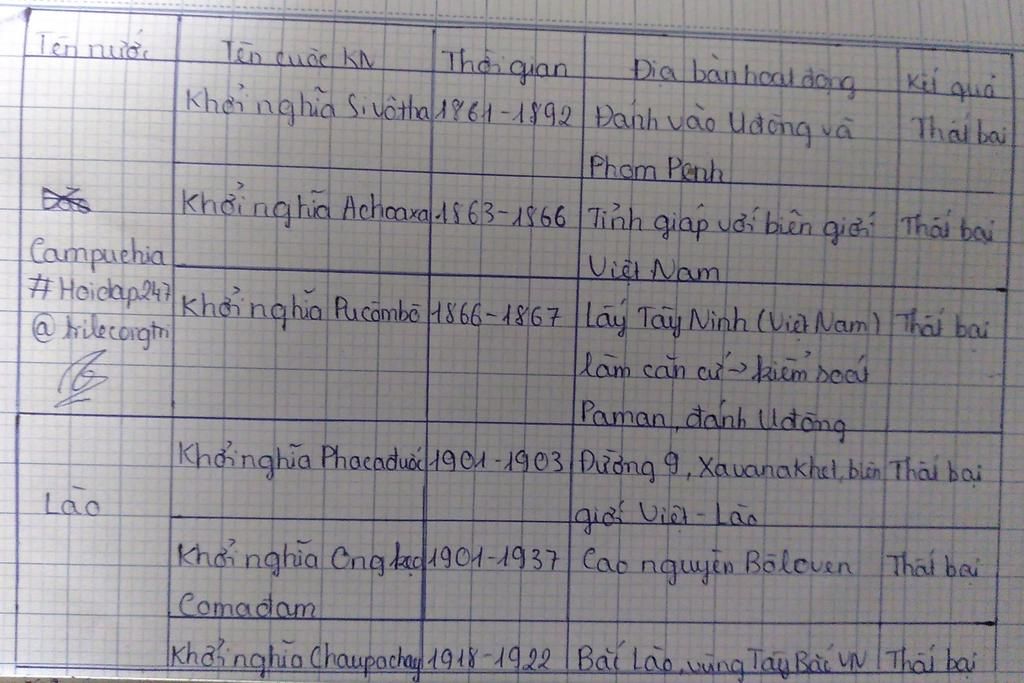 Tên nước Tên cuộc KN Thời gian Địa bàn hoạt động Kết quả
Khởi nghĩa Sivôtha 1861-1892 Đánh vào Uđông và Thất bại
Phnom Penh
Khởi nghĩa Achaxoa 1863-1866 Tỉnh giáp với biên giới Thất bại
Việt Nam
Campuchia
#Hoidap247
Khởi nghĩa Pucômbô 1866-1867 Lấy Tây Ninh (Việt Nam) Thất bại
làm căn cứ → kiểm soát
Paman, đánh Uđông
Lào
Khởi nghĩa Phacađuốc 1901-1903 Đường 9, Xavanakhet, biên Thất bại
giới Việt - Lào
Khởi nghĩa Ong 1901-1937 Cao nguyên Bôloven Thất bại
Comađam
Khởi nghĩa Chaupachay 1918-1922 Bắc Lào, vùng Tây Bắc VN Thất bại